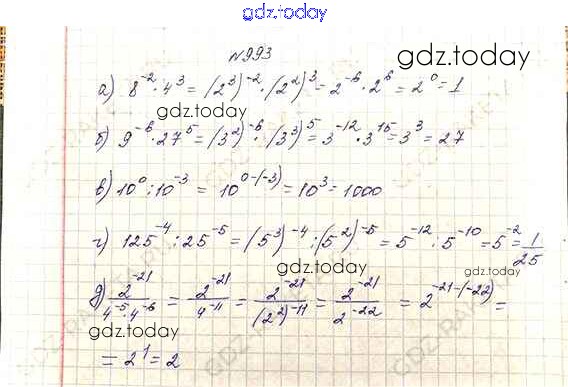 gdz.today
N993
gdz.today
а) 8^-2 · 4^3 = (2^3)^-2 · (2^2)^3 = 2^-6 · 2^6 = 2^0 = 1
gdz.today
б) 9^-6 · 27^5 = (3^2)^-6 · (3^3)^5 = 3^-12 · 3^15 = 3^3 = 27
в) 10^0 : 10^-3 = 10^0-(-3) = 10^3 = 1000
г) 125^-4 : 25^-5 = (5^3)^-4 : (5^2)^-5 = 5^-12 : 5^-10 = 5^-2 = 1/25
gdz.today
gdz.today
д) 2^-21 / 4^-5 · 4^-6 = 2^-21 / 4^-11 = 2^-21 / (2^2)^-11 = 2^-21 / 2^-22 = 2^-21-(-22) =
gdz.today
= 2^1 = 2